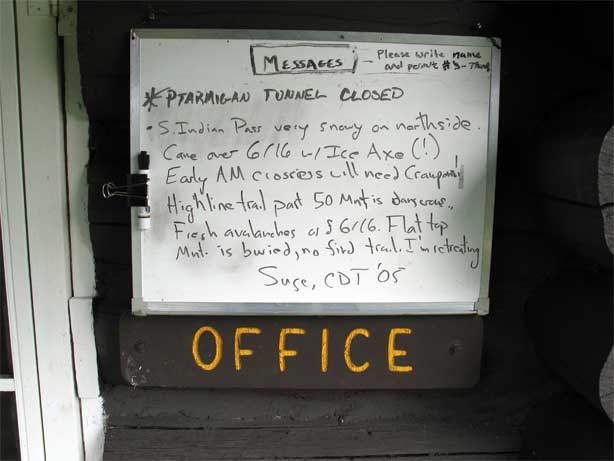 MESSAGES - Please write name
and permit #'s - Thanks
* PTARMIGAN TUNNEL CLOSED
• S. Indian Pass very snowy on northside.
Came over 6/16 w/ Ice Axe (!)
Early AM crossers will need Crampons!
Highline trail past 50 Mnt is dangerous.,
Fresh avalanches as of 6/16. Flat top
Mnt. is buried, no find trail. I'm retreating
Suge, CDT '05
OFFICE